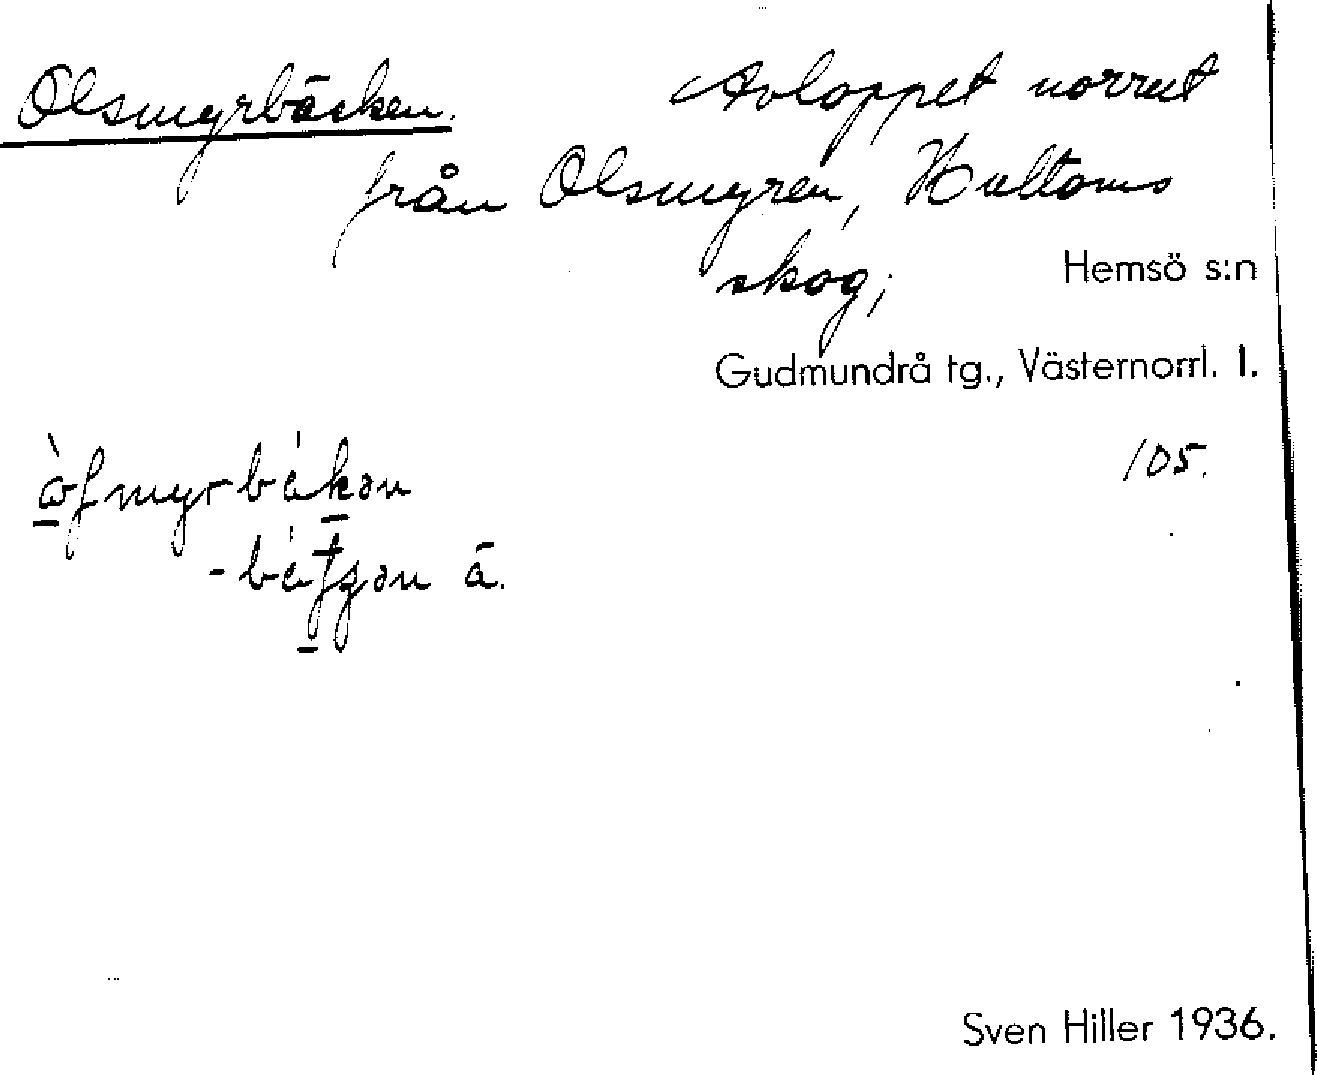 Olsmyrbäcken. Avloppet norrut
från Olsmyren, Hultoms
skog; Hemsö s:n
Gudmundrå tg., Västernorrl. l.
105.
Sven Hiller 1936.